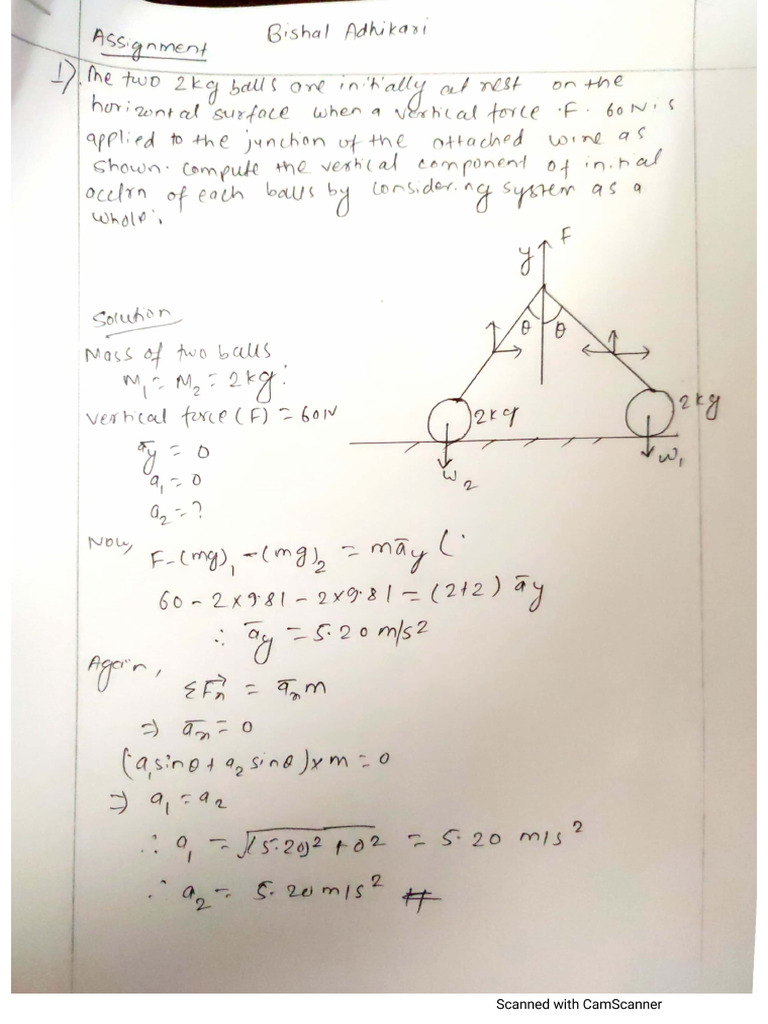 Assignment
Bishal Adhikari
1). The two 2kg balls are initially at rest on the
horizontal surface when a vertical force F. 60N. is
applied to the junction of the attached wire as
shown. compute the vertical component of initial
acclrn of each balls by considering system as a
whole.
F
y
θ θ
2kg
2kg
W2
W1
Solution
Mass of two balls
M1 = M2 = 2kg.
vertical force (F) = 60N
āy = 0
a1 = 0
a2 = ?
Now,
F-(mg)1 -(mg)2 = māy (
60 - 2×9.81 - 2×9.81 = (2+2) āy
∴ āy = 5.20 m/s2
Again,
ΣFx = āx m
⇒ āx = 0
(a1 sinθ + a2 sinθ) × m = 0
⇒ a1 = a2
∴ a1 = √(5.20)2 + 02 = 5.20 m/s2
∴ a2 = 5.20 m/s2 #
Scanned with CamScanner